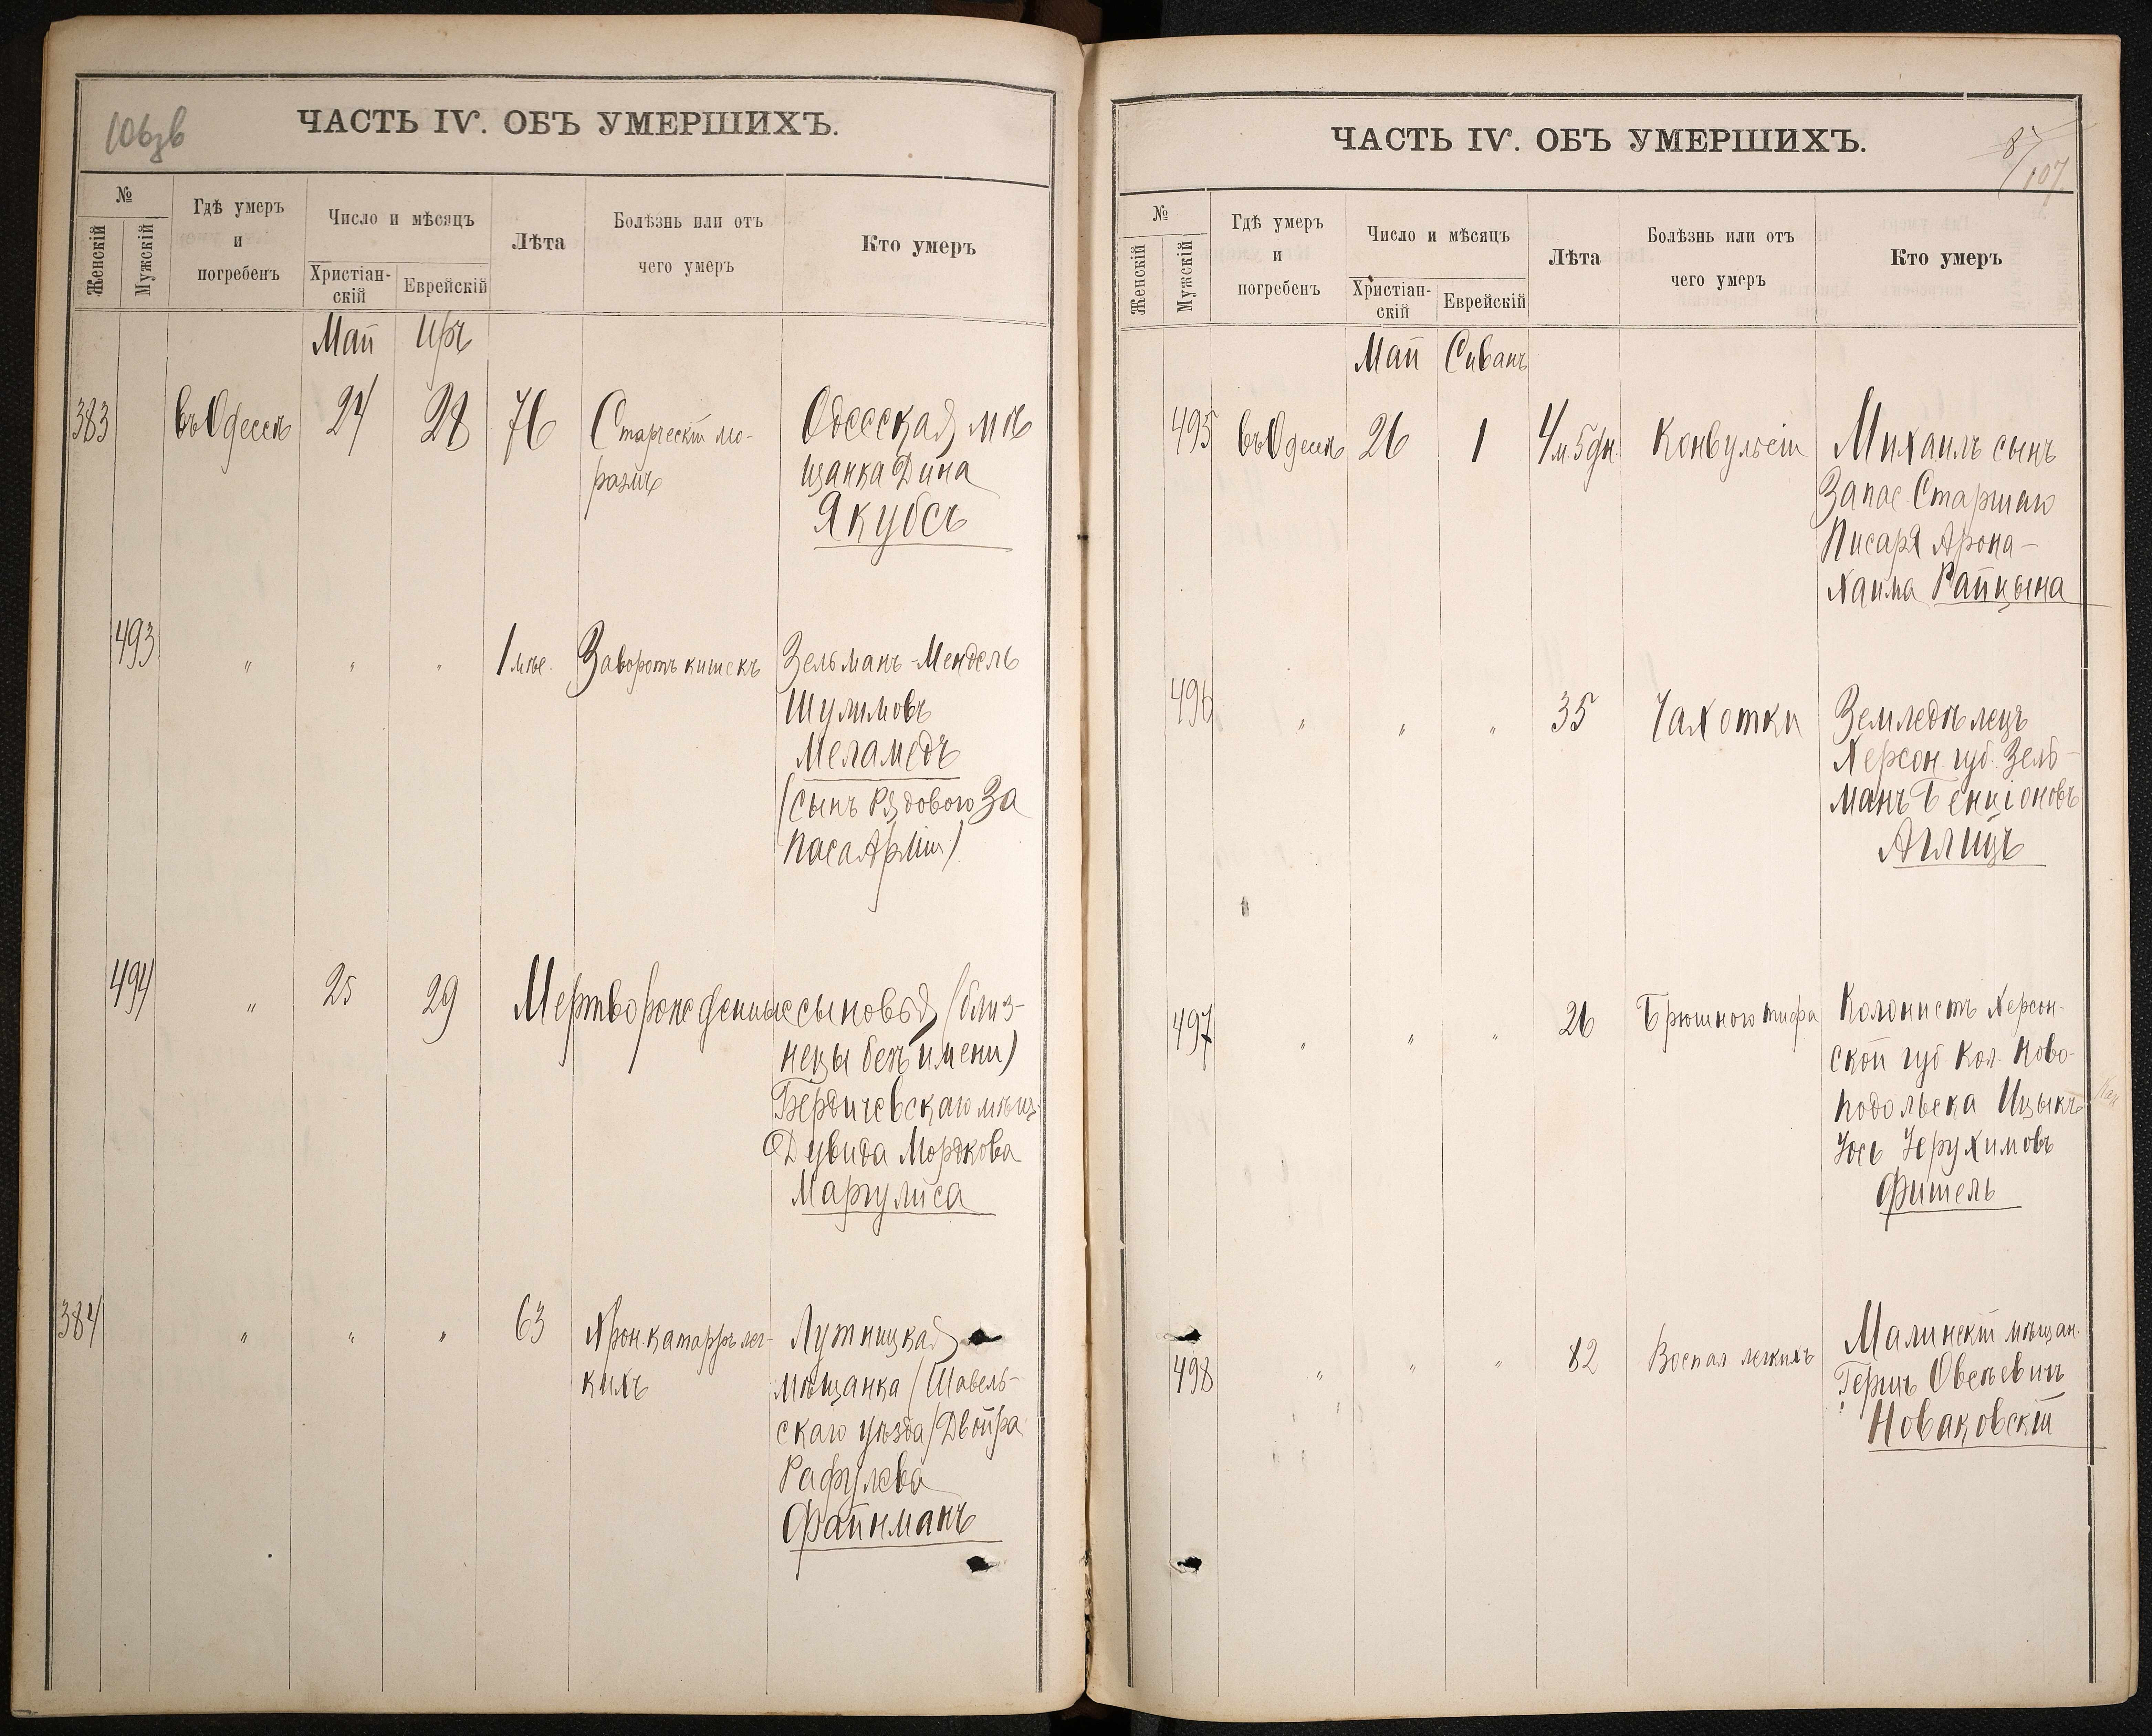 106зв
ЧАСТЬ IV. ОБЪ УМЕРШИХЪ.
№
Женскій
Мужскій
Гдѣ умеръ
и
погребенъ
Число и мѣсяцъ
Христіан-
скій
Еврейскій
Лѣта
Болѣзнь или отъ
чего умеръ
Кто умеръ
Май Иръ
383 въ Одессѣ 24 28 76 Старческій ма- Одесская мѣ
размъ щанка Дина
Якубсъ
493 " " " 1 мѣс. Заворотъ кишекъ Зельманъ-Мендель
Шулимовъ
Меламедъ
(сынъ Рядового За
паса Арміи)
494 " 25 29 Мертворожденные сыновья (близ-
нецы безъ имени)
Бердичевскаго мѣщ.
Дувида Мордкова
Маргулиса
384 " " " 63 Хрон. катарръ лег- Лутницкая
кихъ мѣщанка (Шавель-
скаго уѣзда) Двойра
Рафулева
Файнманъ
ЧАСТЬ IV. ОБЪ УМЕРШИХЪ.
87
107
№
Женскій
Мужскій
Гдѣ умеръ
и
погребенъ
Число и мѣсяцъ
Христіан-
скій
Еврейскій
Лѣта
Болѣзнь или отъ
чего умеръ
Кто умеръ
Май Сиванъ
495 въ Одессѣ 26 1 4 м. 5 дн. Конвульсіи Михаилъ сынъ
Запас Старшаго
Писаря Арона-
Хаима Райцына
496 " " " 35 Чахотки Земледѣлецъ
Херсон. губ. Зель-
манъ Бенціоновъ
Аглицъ
497 " " " 26 Брюшного тифа Колонистъ Херсон-
ской губ. Кол. Ново-
подольска Ицыкъ
Іось Іерухимовъ
Фишель
498 " " " 82 Воспал. легкихъ Малинскій мѣщан.
Гершъ Овсѣевичъ
Новаковскій